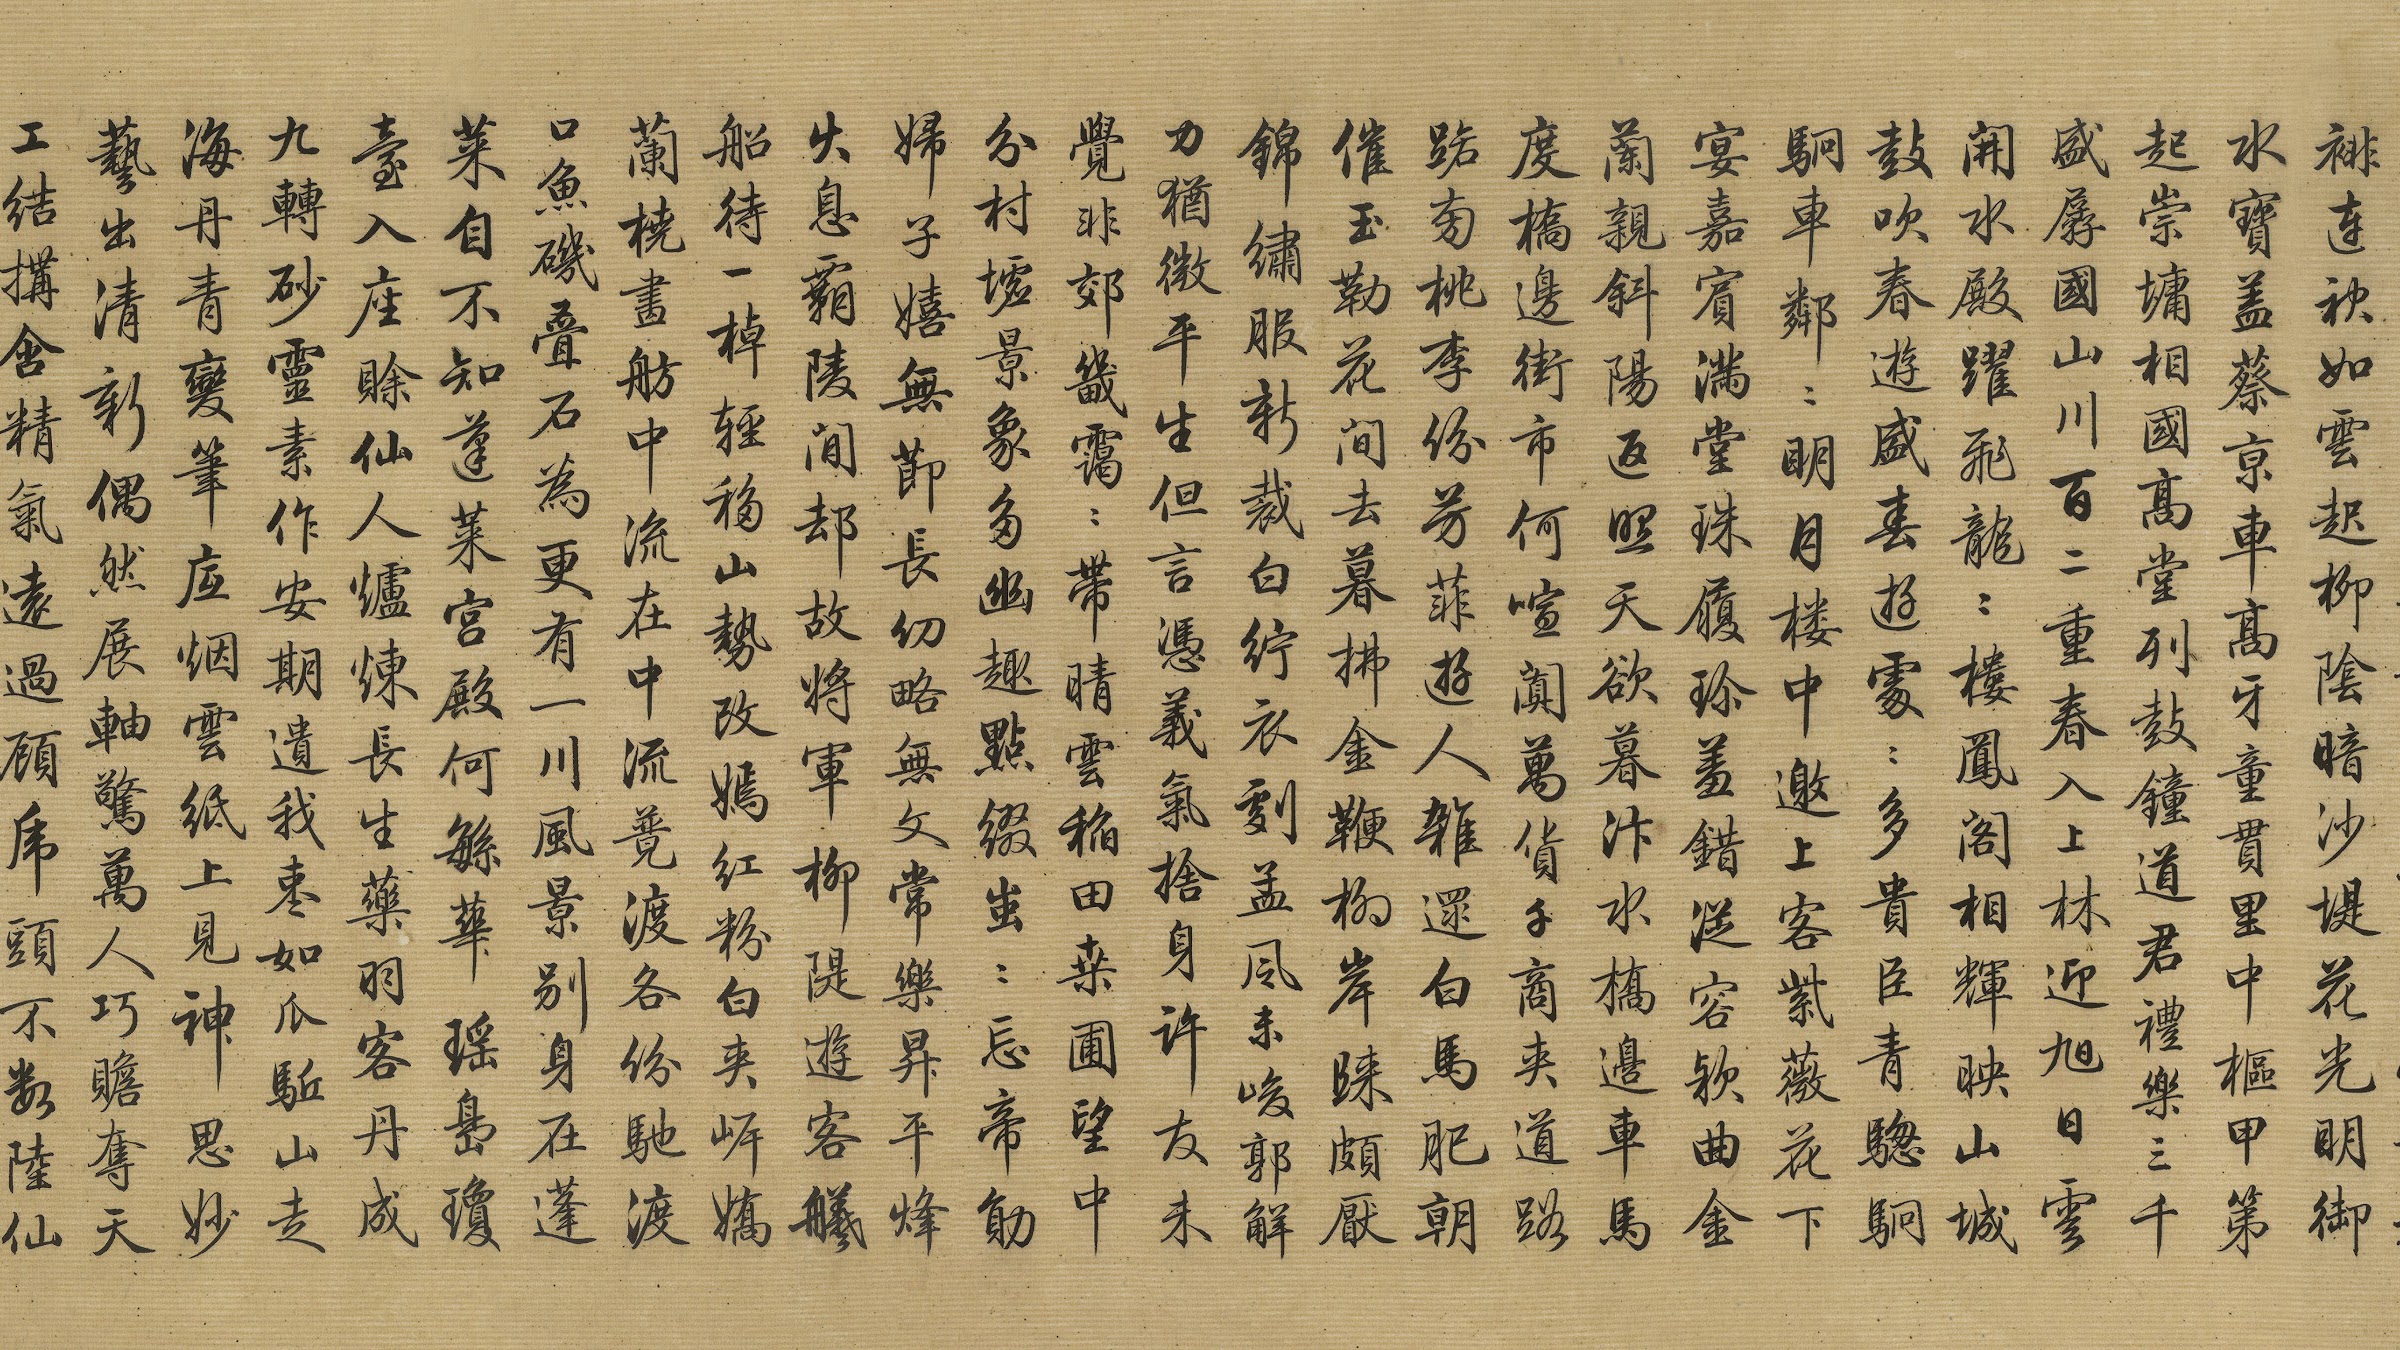 裶連袂如雲起柳陰暗沙堤花光明御
水寶盖蔡京車髙牙童貫里中樞甲第
起崇墉相國髙堂列鼓鐘道君禮樂三千
盛孱國山川百二重春入上林迎旭日雲
開水殿躍飛龍〻樓鳳阁相輝映山城
鼓吹春遊盛春遊處〻多貴臣青驄駉
駉車鄰〻明月楼中邀上客紫薇花下
宴嘉賓滿堂珠履珍羞錯從容欵曲金
蘭親斜陽返照天欲暮汴水橋邊車馬
度橋邊街市何喧闐萬貨千商夾道路
路旁桃李份芳菲遊人雜還白馬肥朝
催玉勒花间去暮拂金鞭柳岸睐頗厭
錦繡服新裁白紵衣劇孟风未峻郭解
力猶微平生但言憑義氣捨身许友未
覺非郊畿靄〻帶晴雲稲田桒圃望中
分村墟景象多幽趣點綴蚩〻忘帝勛
婦子嬉無節長幼略無文常樂昇平烽
火息霸陵间却故將軍柳隄遊客艤
船待一棹轻移山勢改嫣红粉白夾岸嬌
蘭橈畫舫中流在中流競渡各份馳渡
口魚磯叠石為更有一川風景别身在蓬
莱自不知蓬莱宫殿何繁華瑶島瓊
臺入座賖仙人爐煉長生藥羽客丹成
九轉砂靈素作安期遺我枣如瓜駈山走
海丹青變筆底烟雲纸上見神思妙
藝出清新偶然展軸驚萬人巧贍奪天
工结搆含精氣遠過顧虎頭不数陸仙